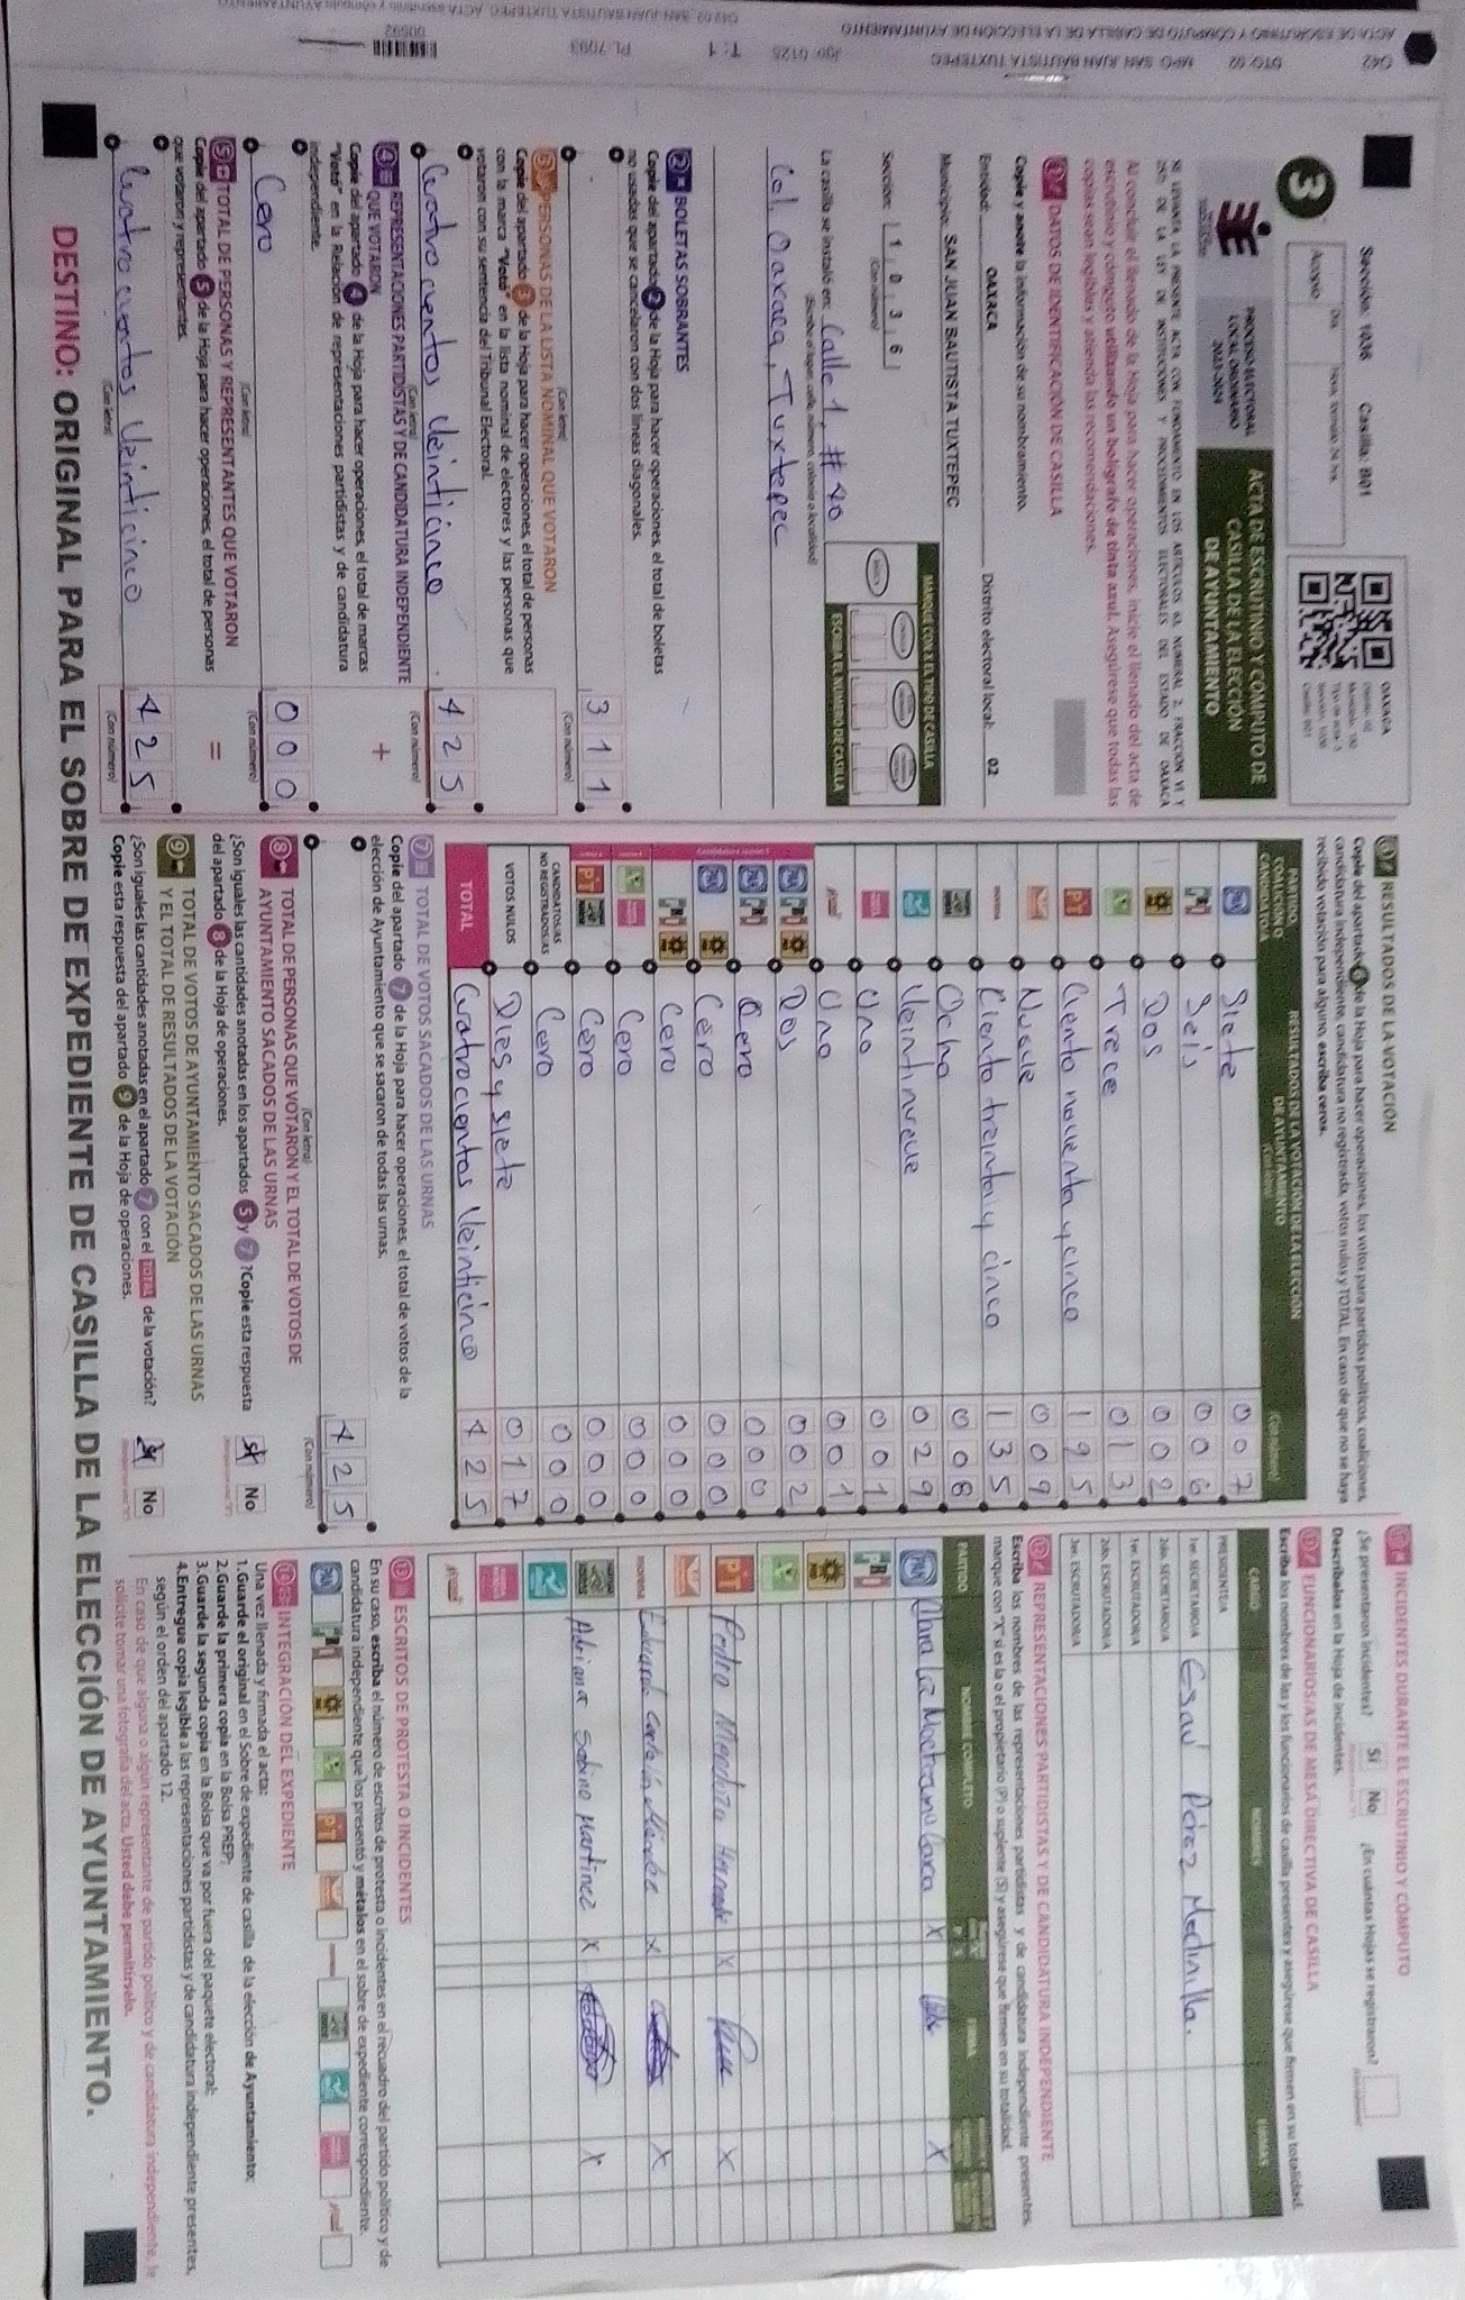 042 DTO: 02 MPO: SAN JUAN BAUTISTA TUXTEPEC
ACTA DE ESCRUTINIO Y CÓMPUTO DE CASILLA DE LA ELECCIÓN DE AYUNTAMIENTO
T: 1 PL: 7093
00592
Sección: 1036 Casilla: B01
Acopio
3
PROCESO ELECTORAL
LOCAL ORDINARIO
2023-2024
ACTA DE ESCRUTINIO Y CÓMPUTO DE
CASILLA DE LA ELECCIÓN
DE AYUNTAMIENTO
OAXACA
SE LEVANTA LA PRESENTE ACTA CON FUNDAMENTO EN LOS ARTÍCULOS 63, NUMERAL 2, FRACCIÓN VI Y
DE LA LEY DE INSTITUCIONES Y PROCEDIMIENTOS ELECTORALES DEL ESTADO DE OAXACA
Al concluir el llenado de la Hoja para hacer operaciones, inicie el llenado del acta de
escrutinio y cómputo utilizando un bolígrafo de tinta azul. Asegúrese que todas las
copias sean legibles y atienda las recomendaciones.
1 DATOS DE IDENTIFICACIÓN DE CASILLA
Copie y anote la información de su nombramiento.
Entidad: OAXACA Distrito electoral local: 02
Municipio: SAN JUAN BAUTISTA TUXTEPEC
Sección: 1 0 3 6
(Con número)
MARQUE CON X EL TIPO DE CASILLA
ESCRIBA EL NÚMERO DE CASILLA
La casilla se instaló en: Calle 1, # 40
(Escriba el lugar, calle, número, colonia o localidad)
Col. Oaxaca, Tuxtepec
2 BOLETAS SOBRANTES
Copie del apartado 2 de la Hoja para hacer operaciones, el total de boletas
no usadas que se cancelaron con dos líneas diagonales.
3 1 1
(Con letra) (Con número)
3 PERSONAS DE LA LISTA NOMINAL QUE VOTARON
Copie del apartado 3 de la Hoja para hacer operaciones, el total de personas
con la marca "Votó" en la lista nominal de electores y las personas que
votaron con su sentencia del Tribunal Electoral.
Cuatrocientos Veinticinco 4 2 5
(Con letra) (Con número)
4 REPRESENTACIONES PARTIDISTAS Y DE CANDIDATURA INDEPENDIENTE
QUE VOTARON +
Copie del apartado 4 de la Hoja para hacer operaciones, el total de marcas
"Votó" en la Relación de representaciones partidistas y de candidatura
independiente.
Cero 0 0 0
(Con letra) (Con número)
5 TOTAL DE PERSONAS Y REPRESENTANTES QUE VOTARON =
Copie del apartado 5 de la Hoja para hacer operaciones, el total de personas
que votaron y representantes.
Cuatrocientos Veinticinco 4 2 5
(Con letra) (Con número)
6 RESULTADOS DE LA VOTACIÓN
Copie del apartado 6 de la Hoja para hacer operaciones, los votos para partidos políticos, coaliciones,
candidatura independiente, candidatura no registrada, votos nulos y TOTAL. En caso de que no se haya
recibido votación para alguno, escriba ceros.
PARTIDO, COALICIÓN O CANDIDATO/A
RESULTADOS DE LA VOTACIÓN DE LA ELECCIÓN
DE AYUNTAMIENTO
(Con letra) (Con número)
PAN Siete 0 0 7
PRI Seis 0 0 6
Dos 0 0 2
Trece 0 1 3
PT Ciento noventa y cinco 1 9 5
Nueve 0 0 9
morena Ciento treinta y cinco 1 3 5
Ocho 0 0 8
Veintinueve 0 2 9
Uno 0 0 1
Uno 0 0 1
PAN PRI Dos 0 0 2
PAN PRI Cero 0 0 0
PAN Cero 0 0 0
PRI Cero 0 0 0
Cero 0 0 0
PT Cero 0 0 0
CANDIDATOS/AS NO REGISTRADOS/AS Cero 0 0 0
VOTOS NULOS Dies y siete 0 1 7
TOTAL Cuatrocientos Veinticinco 4 2 5
7 TOTAL DE VOTOS SACADOS DE LAS URNAS
Copie del apartado 7 de la Hoja para hacer operaciones, el total de votos de la
elección de Ayuntamiento que se sacaron de todas las urnas.
4 2 5
(Con letra) (Con número)
8 TOTAL DE PERSONAS QUE VOTARON Y EL TOTAL DE VOTOS DE
AYUNTAMIENTO SACADOS DE LAS URNAS
¿Son iguales las cantidades anotadas en los apartados 5 y 7? Copie esta respuesta
del apartado 8 de la Hoja de operaciones.
Sí No
9 TOTAL DE VOTOS DE AYUNTAMIENTO SACADOS DE LAS URNAS
Y EL TOTAL DE RESULTADOS DE LA VOTACIÓN
¿Son iguales las cantidades anotadas en el apartado 7 con el TOTAL de la votación?
Copie esta respuesta del apartado 9 de la Hoja de operaciones.
Sí No
INCIDENTES DURANTE EL ESCRUTINIO Y CÓMPUTO
¿Se presentaron incidentes? Sí No ¿En cuántas Hojas se registraron?
Descríbalos en la Hoja de incidentes.
FUNCIONARIOS/AS DE MESA DIRECTIVA DE CASILLA
Escriba los nombres de las y los funcionarios de casilla presentes y asegúrese que firmen en su totalidad.
CARGO NOMBRES FIRMAS
PRESIDENTE/A
1er. SECRETARIO/A Esaú Pérez Medinilla.
2do. SECRETARIO/A
1er. ESCRUTADOR/A
2do. ESCRUTADOR/A
3er. ESCRUTADOR/A
REPRESENTACIONES PARTIDISTAS Y DE CANDIDATURA INDEPENDIENTE
Escriba los nombres de las representaciones partidistas y de candidatura independiente presentes,
marque con "X" si es la o el propietario (P) o suplente (S) y asegúrese que firmen en su totalidad.
PARTIDO NOMBRE COMPLETO FIRMA
PAN X X
PRI
PT Pedro Mendoza X X
morena X X
Adriana Sabino Martinez X X
ESCRITOS DE PROTESTA O INCIDENTES
En su caso, escriba el número de escritos de protesta o incidentes en el recuadro del partido político y de
candidatura independiente que los presentó y métalos en el sobre de expediente correspondiente.
INTEGRACIÓN DEL EXPEDIENTE
Una vez llenada y firmada el acta:
1. Guarde el original en el Sobre de expediente de casilla de la elección de Ayuntamiento;
2. Guarde la primera copia en la Bolsa PREP;
3. Guarde la segunda copia en la Bolsa que va por fuera del paquete electoral;
4. Entregue copia legible a las representaciones partidistas y de candidatura independiente presentes,
según el orden del apartado 12.
En caso de que alguna o algún representante de partido político y de candidatura independiente, le
solicite tomar una fotografía del acta, Usted debe permitírselo.
DESTINO: ORIGINAL PARA EL SOBRE DE EXPEDIENTE DE CASILLA DE LA ELECCIÓN DE AYUNTAMIENTO.